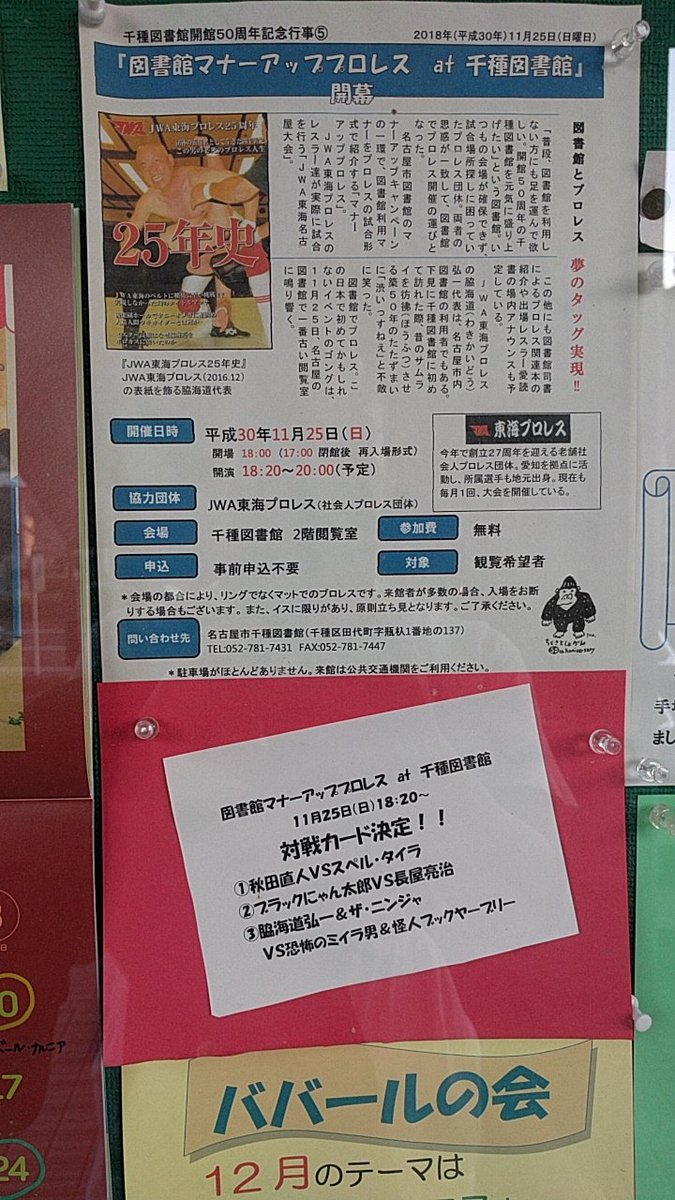 千種図書館開館50周年記念行事⑤
2018年(平成30年)11月25日(日曜日)
『図書館マナーアッププロレス at 千種図書館』
開幕
図書館とプロレス 夢のタッグ実現!!
「普段、図書館を利用し
ない方にも足を運んで欲
しい。開館50周年の千
種図書館を元気に盛り上
げたい」という図書館。い
つもの会場が確保できず、
試合場所探しに困ってい
たプロレス団体。両者の
思惑が一致して、図書館
でプロレス開催の運びと
なった。
名古屋市図書館のマ
ナーアップキャンペーン
の一環で、図書館利用マ
ナーをプロレスの試合形
式で紹介する「マナー
アッププロレス」。
JWA東海プロレスの
レスラー達が実際に試合
を行う「JWA東海名古
屋大会」。
この他にも図書館司書
によるプロレス関連本の
紹介や出場レスラー愛読
書の場内アナウンスも予
定している。
JWA東海プロレス
の脇海道(わきかいどう)
弘一代表は、名古屋市内
図書館の利用者でもある。
下見に千種図書館に初め
て訪れた際、昔のサムラ
イを彷彿(ほうふつ)させ
る築50年のたたずまい
に「渋いっすねえ」と不敵
に笑った。
図書館でプロレス。こ
の日本で初めてかもしれ
ないイベントのゴングは、
11月25日、名古屋の
図書館で一番古い閲覧室
に鳴り響く。
JWA東海プロレス25周年
25年史
『JWA東海プロレス25年史』
JWA東海プロレス(2016.12)
の表紙を飾る脇海道代表
開催日時 平成30年11月25日(日)
開場 18:00 (17:00 閉館後 再入場形式)
開演 18:20～20:00(予定)
東海プロレス
今年で創立27周年を迎える老舗社
会人プロレス団体。愛知を拠点に活
動し、所属選手も地元出身。現在も
毎月1回、大会を開催している。
協力団体 JWA東海プロレス(社会人プロレス団体)
会場 千種図書館 2階閲覧室
参加費 無料
申込 事前申込不要
対象 観覧希望者
*会場の都合により、リングでなくマットでのプロレスです。来館者が多数の場合、入場をお断
りする場合もございます。また、イスに限りがあり、原則立ち見となります。ご了承ください。
問い合わせ先 名古屋市千種図書館(千種区田代町字瓶杁1番地の137)
TEL:052-781-7431 FAX:052-781-7447
ちくさとしょかん
50th anniversary
*駐車場がほとんどありません。来館は公共交通機関をご利用ください。
図書館マナーアッププロレス at 千種図書館
11月25日(日)18:20～
対戦カード決定!!
①秋田直人VSスペル・タイラ
②ブラックにゃん太郎VS長屋亮治
③脇海道弘一&ザ・ニンジャ
VS恐怖のミイラ男&怪人ブックヤーブリー
ババールの会
12月のテーマは